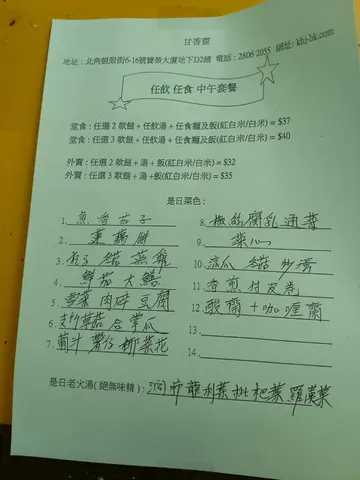 甘香齋
地址：北角蜆殼街6-16號寶榮大廈地下D2舖 電話：2806 2055 網址: khj-hk.com
任飲 任食 中午套餐
堂食：任選 2 款餸 + 任飲湯 + 任食麵及飯(紅白米/白米) = $37
堂食：任選 3 款餸 + 任飲湯 + 任食麵及飯(紅白米/白米) = $40
外賣：任選 2 款餸 + 湯 + 飯(紅白米/白米) = $32
外賣：任選 3 款餸 + 湯 +飯(紅白米/白米) = $35
是日菜色：
1. 魚香茄子
2. 蓮藕餅
3. 杞子 冬菇 蒸雞
4. 鮮茄 大鱔
5. 雪菜 肉碎 豆腐
6. 支竹草菇 合掌瓜
7. 葡汁 薯仔 椰菜花
8. 椒絲腐乳 通菜
9. 菜心
10. 涼瓜 冬菇 炒蛋
11. 香煎 付皮卷
12. 酸齋 + 咖喱齋
13.
14.
是日老火湯( 絕無味精 ) : 潤肺龍利葉枇杷葉 羅漢果